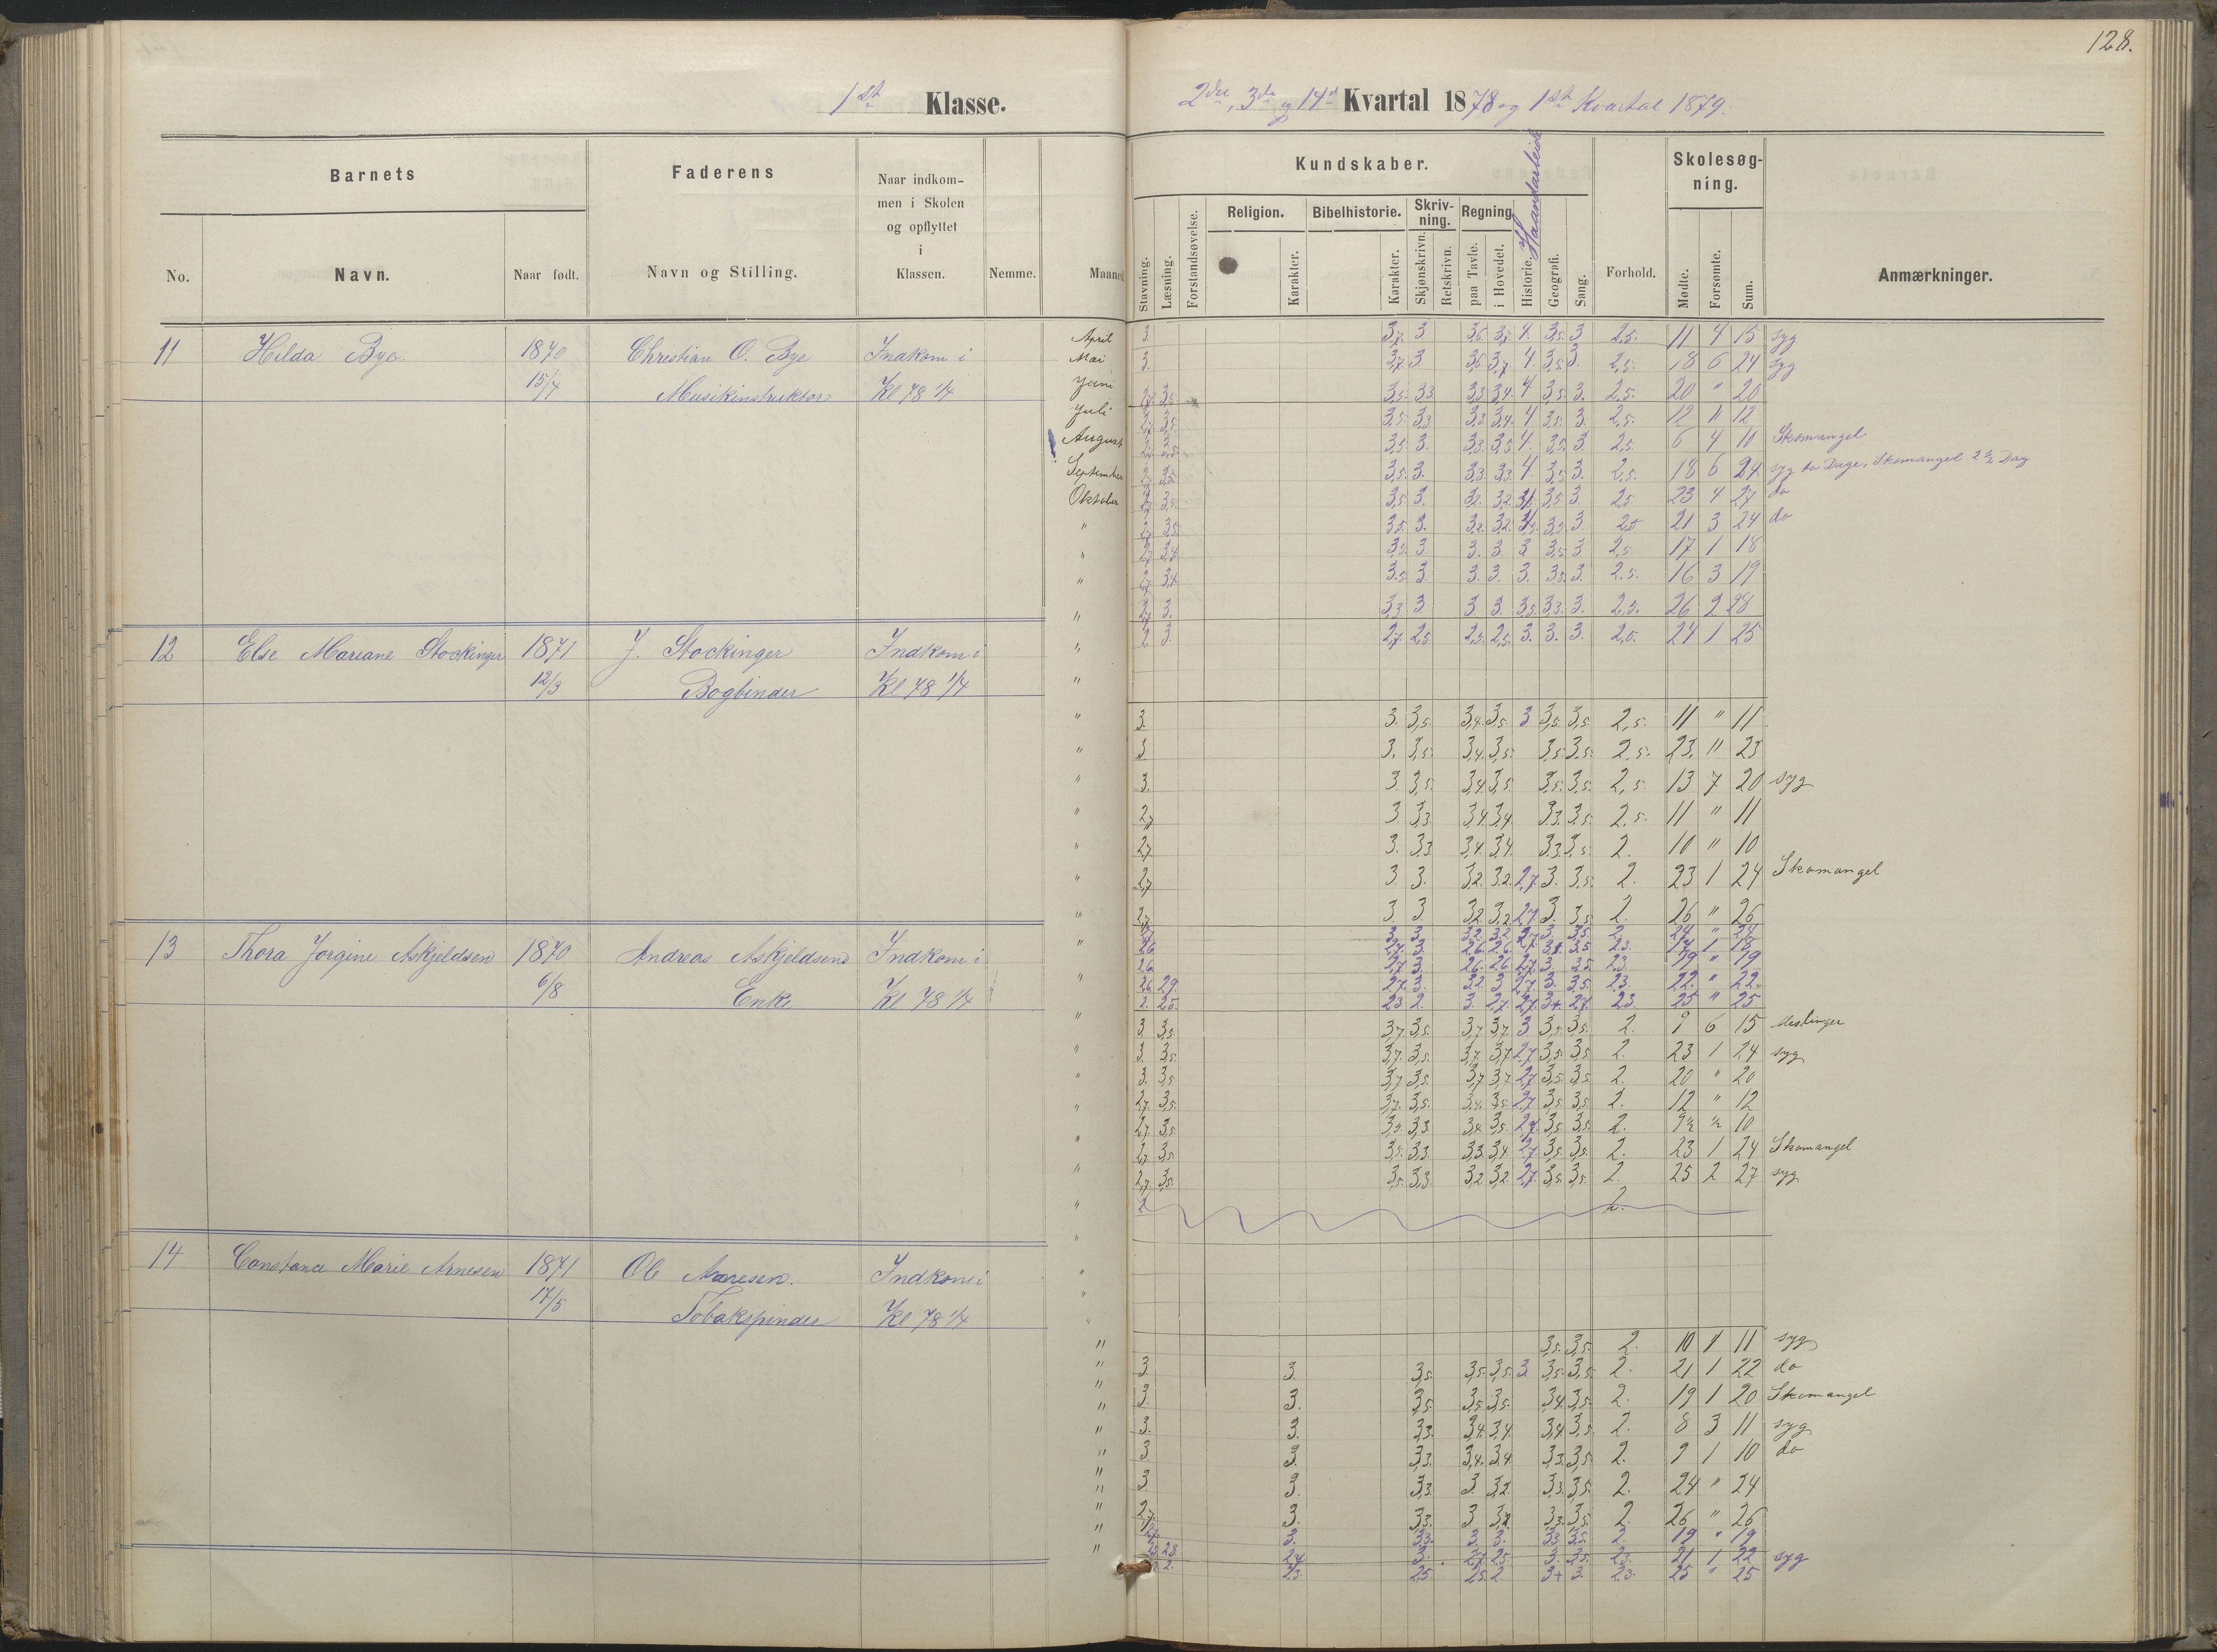 128.
1ste Klasse.
2den, 3die og 14d Kvartal 1878 og 1ste Kvartal 1879.
Barnets
Faderens
Naar indkommen i Skolen og opflyttet i Klassen.
Nemme.
Maaned
No.
Navn.
Naar født.
Navn og Stilling.
Kundskaber.
Skolesøgning.
Stavning.
Læsning.
Forstandsøvelse.
Religion.
Karakter.
Bibelhistorie.
Karakter.
Skrivning.
Skjønskrivn.
Retskrivn.
Regning
paa Tavle.
i Hovedet.
Historie.
Haandarbeide
Geografi.
Sang.
Forhold.
Mødte.
Forsømte.
Sum.
Anmærkninger.
11 Hilda Bye 1870 Christian O. Bye Indkom i
15/4 Musikinstruktør Kl 78 1/4
April 3. 3,7. 3 3,6. 3,7. 4. 3,5. 3 2,5. 11 4 15 syg
Mai 3. 3,7. 3. 3,6 3,7. 4. 3,5 3. 2,5. 18 6 24 syg
Juni 2,7. 3,5. 3,5. 3,3 3,3 3,4. 4 3,5 3. 2,5. 20 " 20
Juli 2,7. 3,5. 3,5. 3,3 3,3 3,4. 4 3,5. 3. 2,5. 12 " 12
August 2,7. 3,5. 3,5 3. 3,3. 3,5 4. 3,5. 3. 2,5. 6 4 10 Skomangel
September 2,7. 3,5. 3,5. 3. 3,3. 3,3. 4. 3,5. 3. 2,5. 18 6 24 syg to Dage, Skomangel 2 1/2 Dag
Oktober 2,7. 3,5. 3,5. 3. 3,2. 3,2. 3,5 3 2,5. 23 4 27 do
" 2,7. 3,5. 3,5. 3. 3,2. 3,2. 3,5. 3. 2,5 21 3 24 do
" 2,7. 3,4 3,5. 3 3. 3 3 3,5 3 2,5 17 1 18
" 2,7. 3,4. 3,5. 3 3. 3. 3. 3,5. 3. 2,5. 16 3 19
" 2,7. 3. 3,3 3 3 3. 3,5. 3,3. 3. 2,5. 26 2 28
12 Else Mariane Stockinger 1871 J. Stockinger Indkom i
12/3 Bogbinder Kl 78 1/4
" 2. 3 2,7. 2,5. 2,5. 2,5. 3. 3. 3. 2,5. 24 1 25
" 3. 3. 3,5. 3,4. 3,5. 3 3,5. 3,5. 2,5. 11 " 11
" 3. 3. 3,5. 3,4 3,5. 3,5. 3,5. 2,5. 23. " 23
" 3. 3. 3,5. 3,4 3,5 3,5. 3,5. 2,5 13 7 20 syg
" 2,7 3. 3,3. 3,4. 3,4. 3,3. 3,5. 2,5. 11 " 11
" 2,7. 3. 3,3 3,4. 3,4. 3,3 3,5. 2. 10 " 10
" 2,7 3. 3. 3,2. 3,2. 2,7. 3. 3,5. 2. 23 1 24 Skomangel
" 2,7. 3. 3 3,2. 3,2 2,7. 3. 3,5 2. 26 " 26
13 Thora Jorgine Askjeldsen 1870 Andreas Askjeldsens Indkom i
6/8 Enke Kl 78 1/4
3. 3 3,2. 3,2 2,7 3. 3,5. 2. 24 " 24
2,6 2,7. 3 2,6 2,6. 2,7 3+ 3,5 2,3. 17 1 18
2,6 2,7. 3. 2,6. 2,6 2,7. 3. 3,5 2,3 19 " 19
2,6 2,9. 2,7. 3. 3,2. 3 2,7. 3. 3,5. 2,3. 22. " 22.
2. 2,5. 2,3 2. 3. 2,7. 2,7. 3+ 2,7. 2,3. 25 " 25
" 3. 3,5. 3,7. 3,5. 3,7. 3,7. 3 3,5. 3,5. 2. 9 6 15 Meslinger
" 3. 3,5. 3,7. 3,5. 3,7. 3,7 2,7 3,5. 3,5 2. 23 1 24 syg
" 3. 3,5 3,7 3,5. 3,7 3,7. 2,7. 3,5 3,5. 2. 20 " 20
" 2,7. 3,5. 3,7. 3,5. 3,4. 3,5. 2,7 3,5. 3,5. 2. 12 " 12
2,7. 3,5. 3,5 3,3. 3,4 3,5. 2,7. 3,5 3,5. 2. 9 1/2 1/2 10
" 2,7. 3,5. 3,5. 3,3. 3,3. 3,4. 2,7 3,5. 3,5. 2. 23 1 24 Skomangel
" 2,7. 3,5. 3,5. 3,3 3,2 3,2. 2,7. 3,5. 3,5. 2. 25 2 27 syg
" 2 2.
14 Constance Marie Arnesen 1871 Ole Arnesen. Indkom i
17/5 Tobakspinder Kl 78 1/4
" 3,5. 3,5. 2. 10 1 11 syg
" 3. 3. 3,5. 3,5 3,5. 3. 3,5. 3,5. 2. 21 1 22 do
" 3. 3. 3,5. 3,5 3,5. 3,4. 3,5. 2. 19 1 20 Skomangel
" 3. 3. 3,3. 3,4. 3,4. 3,4 3,5. 2. 8 3 11 syg
" 3. 3. 3,3. 3,4. 3,4 3,3. 3,5. 2. 9 1 10 do
" 3. 3. 3,3. 3. 3,2. 3,3. 3,5. 2. 24 " 24
" 2,7. 3. 3,3. 3 3,2 3,3. 3,5. 2. 26 " 26
" 2,7. 3. 3,3. 3. 3. 3,3. 3,5. 2 19 " 19
" 2,3 2,8. 2,4 3. 2,7 2,5. 3. 3,5. 2,3. 21 1 22 syg
2. 2. 2,3. 2,5. 2,5. 2 3+ 3. 2,3. 25 " 25